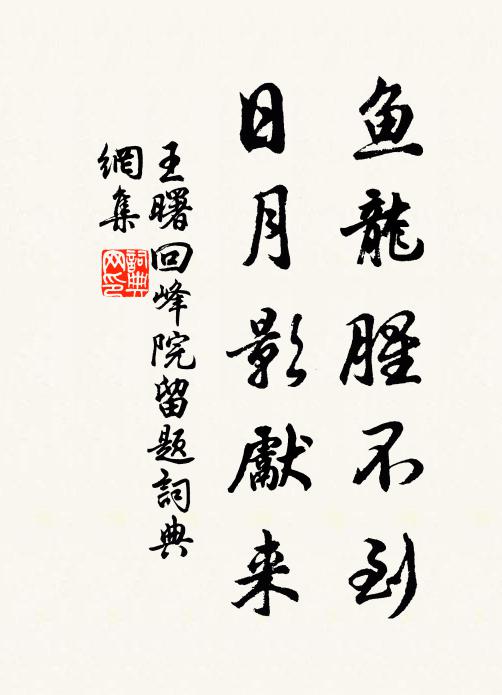 鱼龍腥不到
日月影獻来
王曙回峰院留題詞典
網集
詞典网印